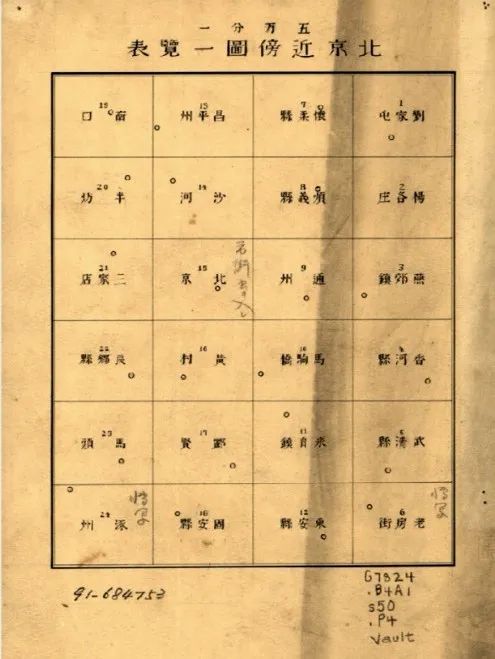 五万分一
北京近傍圖一覽表
1
劉家屯
2
楊各庄
3
燕郊鎮
4
香河縣
5
武清縣
6
老房街
7
懷柔縣
8
順義縣
9
通州
10
馬駒橋
11
采育鎮
12
東安縣
13
昌平州
14
沙河
15
北京
16
黃村
17
賢
18
固安縣
19
南口
20
羊坊
21
三家店
22
良鄉縣
23
馬頭
24
涿州
91-684753
G7824
.B4A1
s50
.P4
Vault